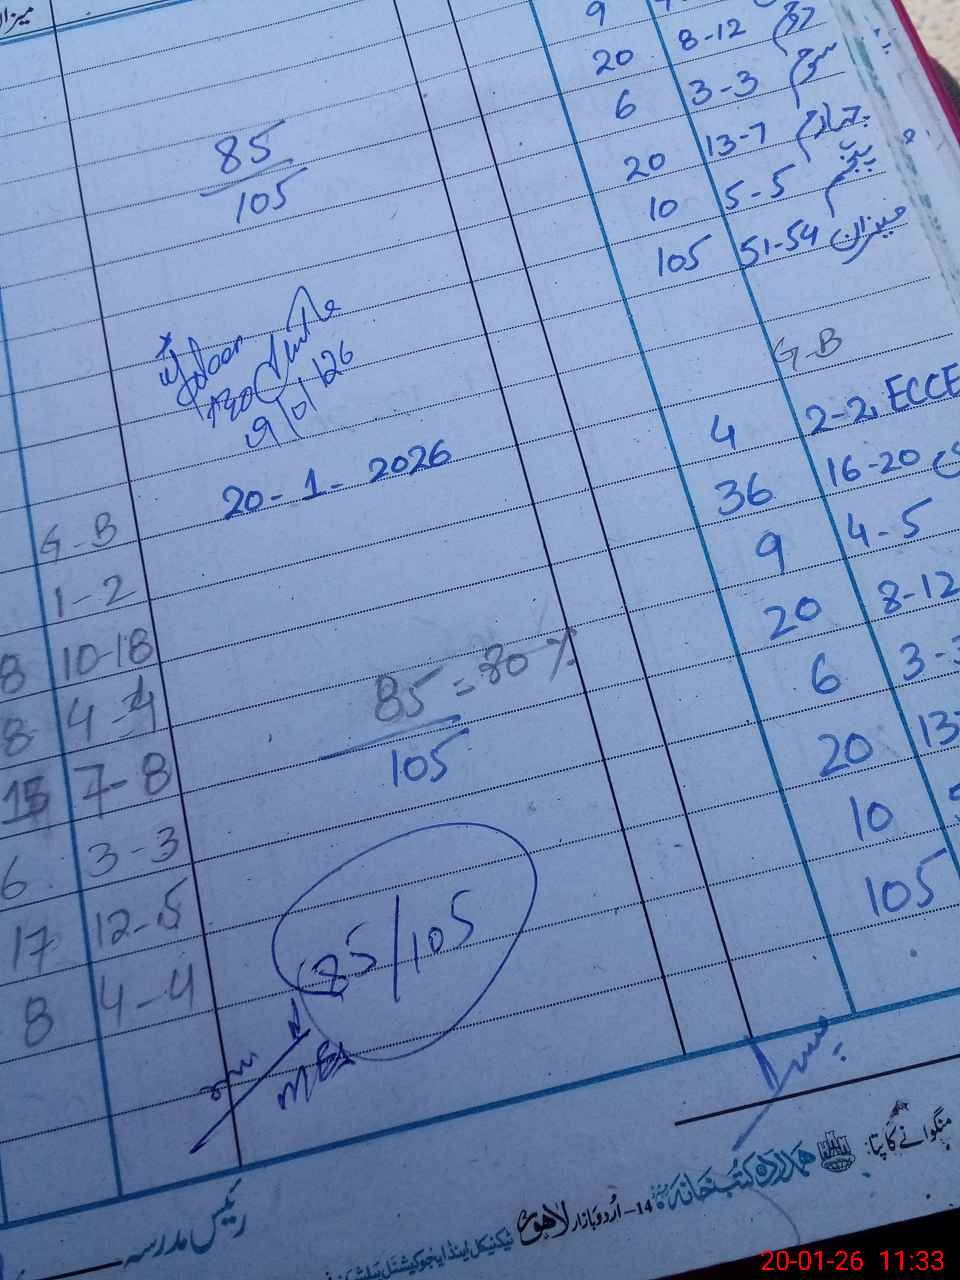 میزان
9
20 8-12 دوم
6 3-3 سوم
20 13-7 چہارم
10 5-5 پنجم
105 51-54 میزان
85
105
20-1-2026
G-B
4 2-2, ECCE
36 16-20
9 4-5
20 8-12
6 3-3
20 13-
10
105
G-B
1-2
8 10-18
8 4-4
15 7-8
6 3-3
17 12-5
8 4-4
85 = 80%
105
85/105
رئیس مدرسہ
منگوانے کا پتا:
ہمدرد کتب خانہ
14-اُردو بازار لاہور
ٹیکنیکل اینڈ ایجوکیشنل پبلشرز
20-01-26 11:33